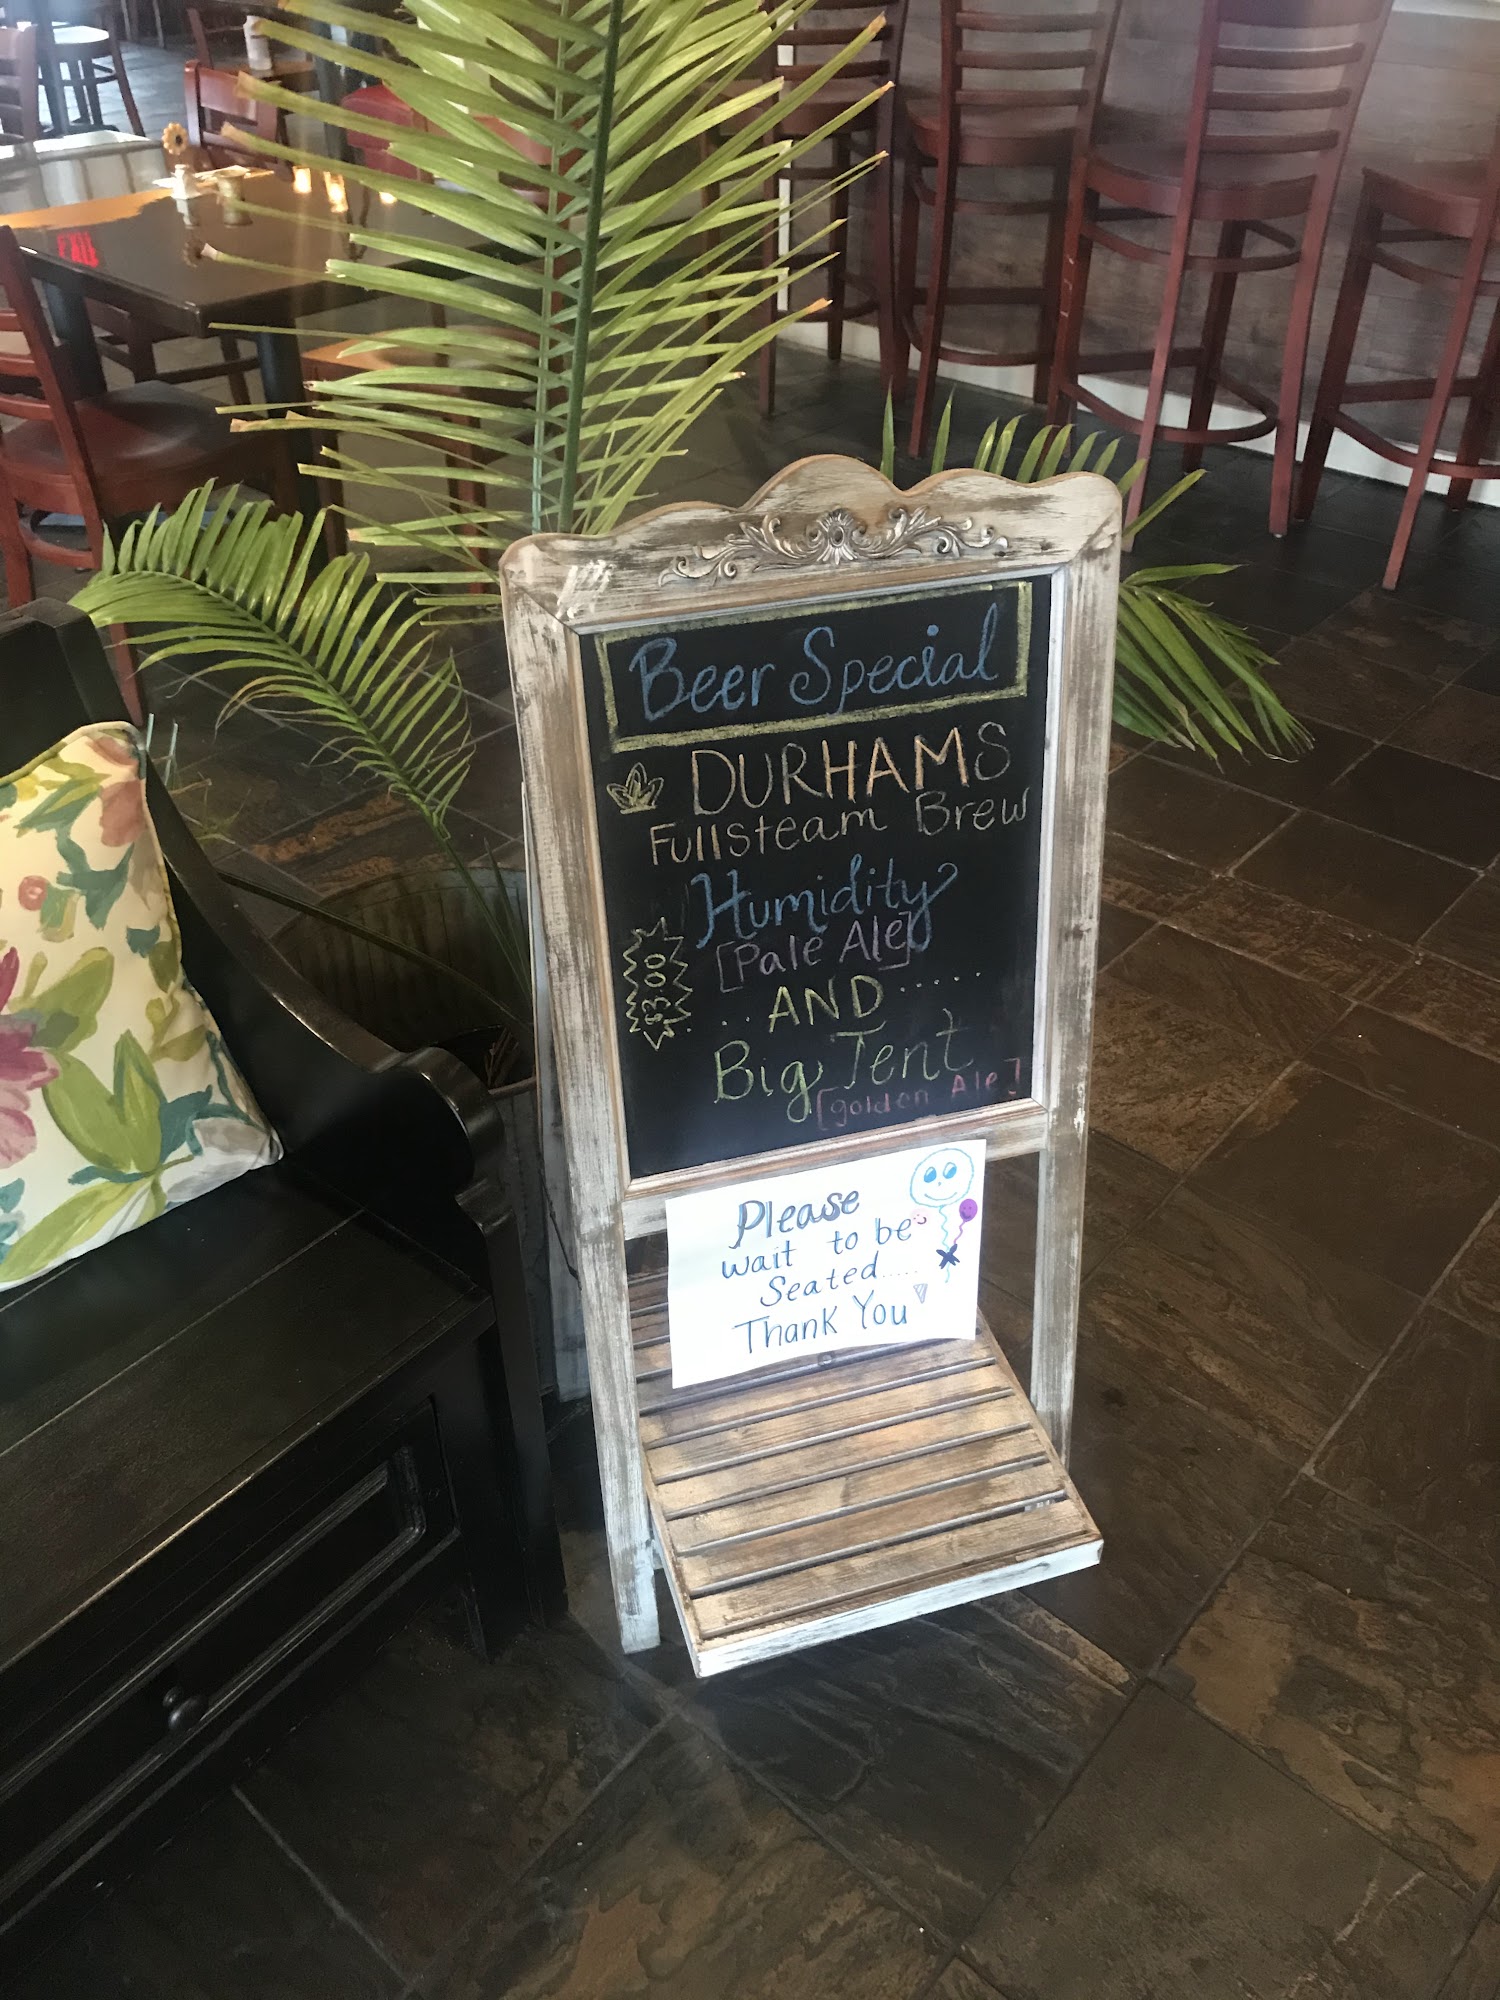 EXIT
Beer Special
DURHAMS
Fullsteam Brew
Humidity
[Pale Ale]
$3.00
..AND.....
Big Tent
[golden Ale]
Please
wait to be
Seated.....
Thank You